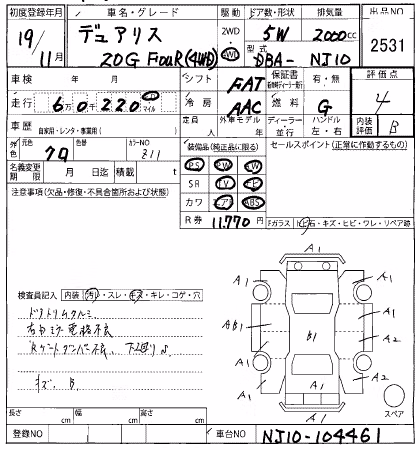 初度登録年月 車名・グレード 駆動 ドア数・形状 排気量 出品NO
19/11月 デュアリス 20G FOUR(4WD) 2WD 4WD 5W 2000cc 2531
型式 DBA-NJ10
車検 年 月 シフト FAT 保証書 有・無 評価点 4
走行 6万0千220 km マイル 冷房 AAC 燃料 G
車歴 自家用・レンタ・事業用( ) 定員 人 外車モデル 年 ディーラー・並行 ハンドル 左・右 内装評価 B
外色 元色 クロ 色替 カラーNO 装備品(純正品に限る) セールスポイント(正常に作動するもの)
名義変更期限 月 日迄 積載 t PS PW SW
注意事項(欠品・修復・不具合箇所および状態) SR TV ナビ
カワ エアB ABS
R券 11,770円 Fガラス トビ石・キズ・ヒビ・ワレ・リペア跡
A1
A1 A1
検査員記入 内装 汚レ・スレ・キズ・キレ・コゲ・穴
ドアトリムクルミ AB1 B1 A1
A2
A1 A2
キズ B A1
A1
スペア
長さ cm 幅 cm 高さ cm
登録NO 車台NO NJ10-104461